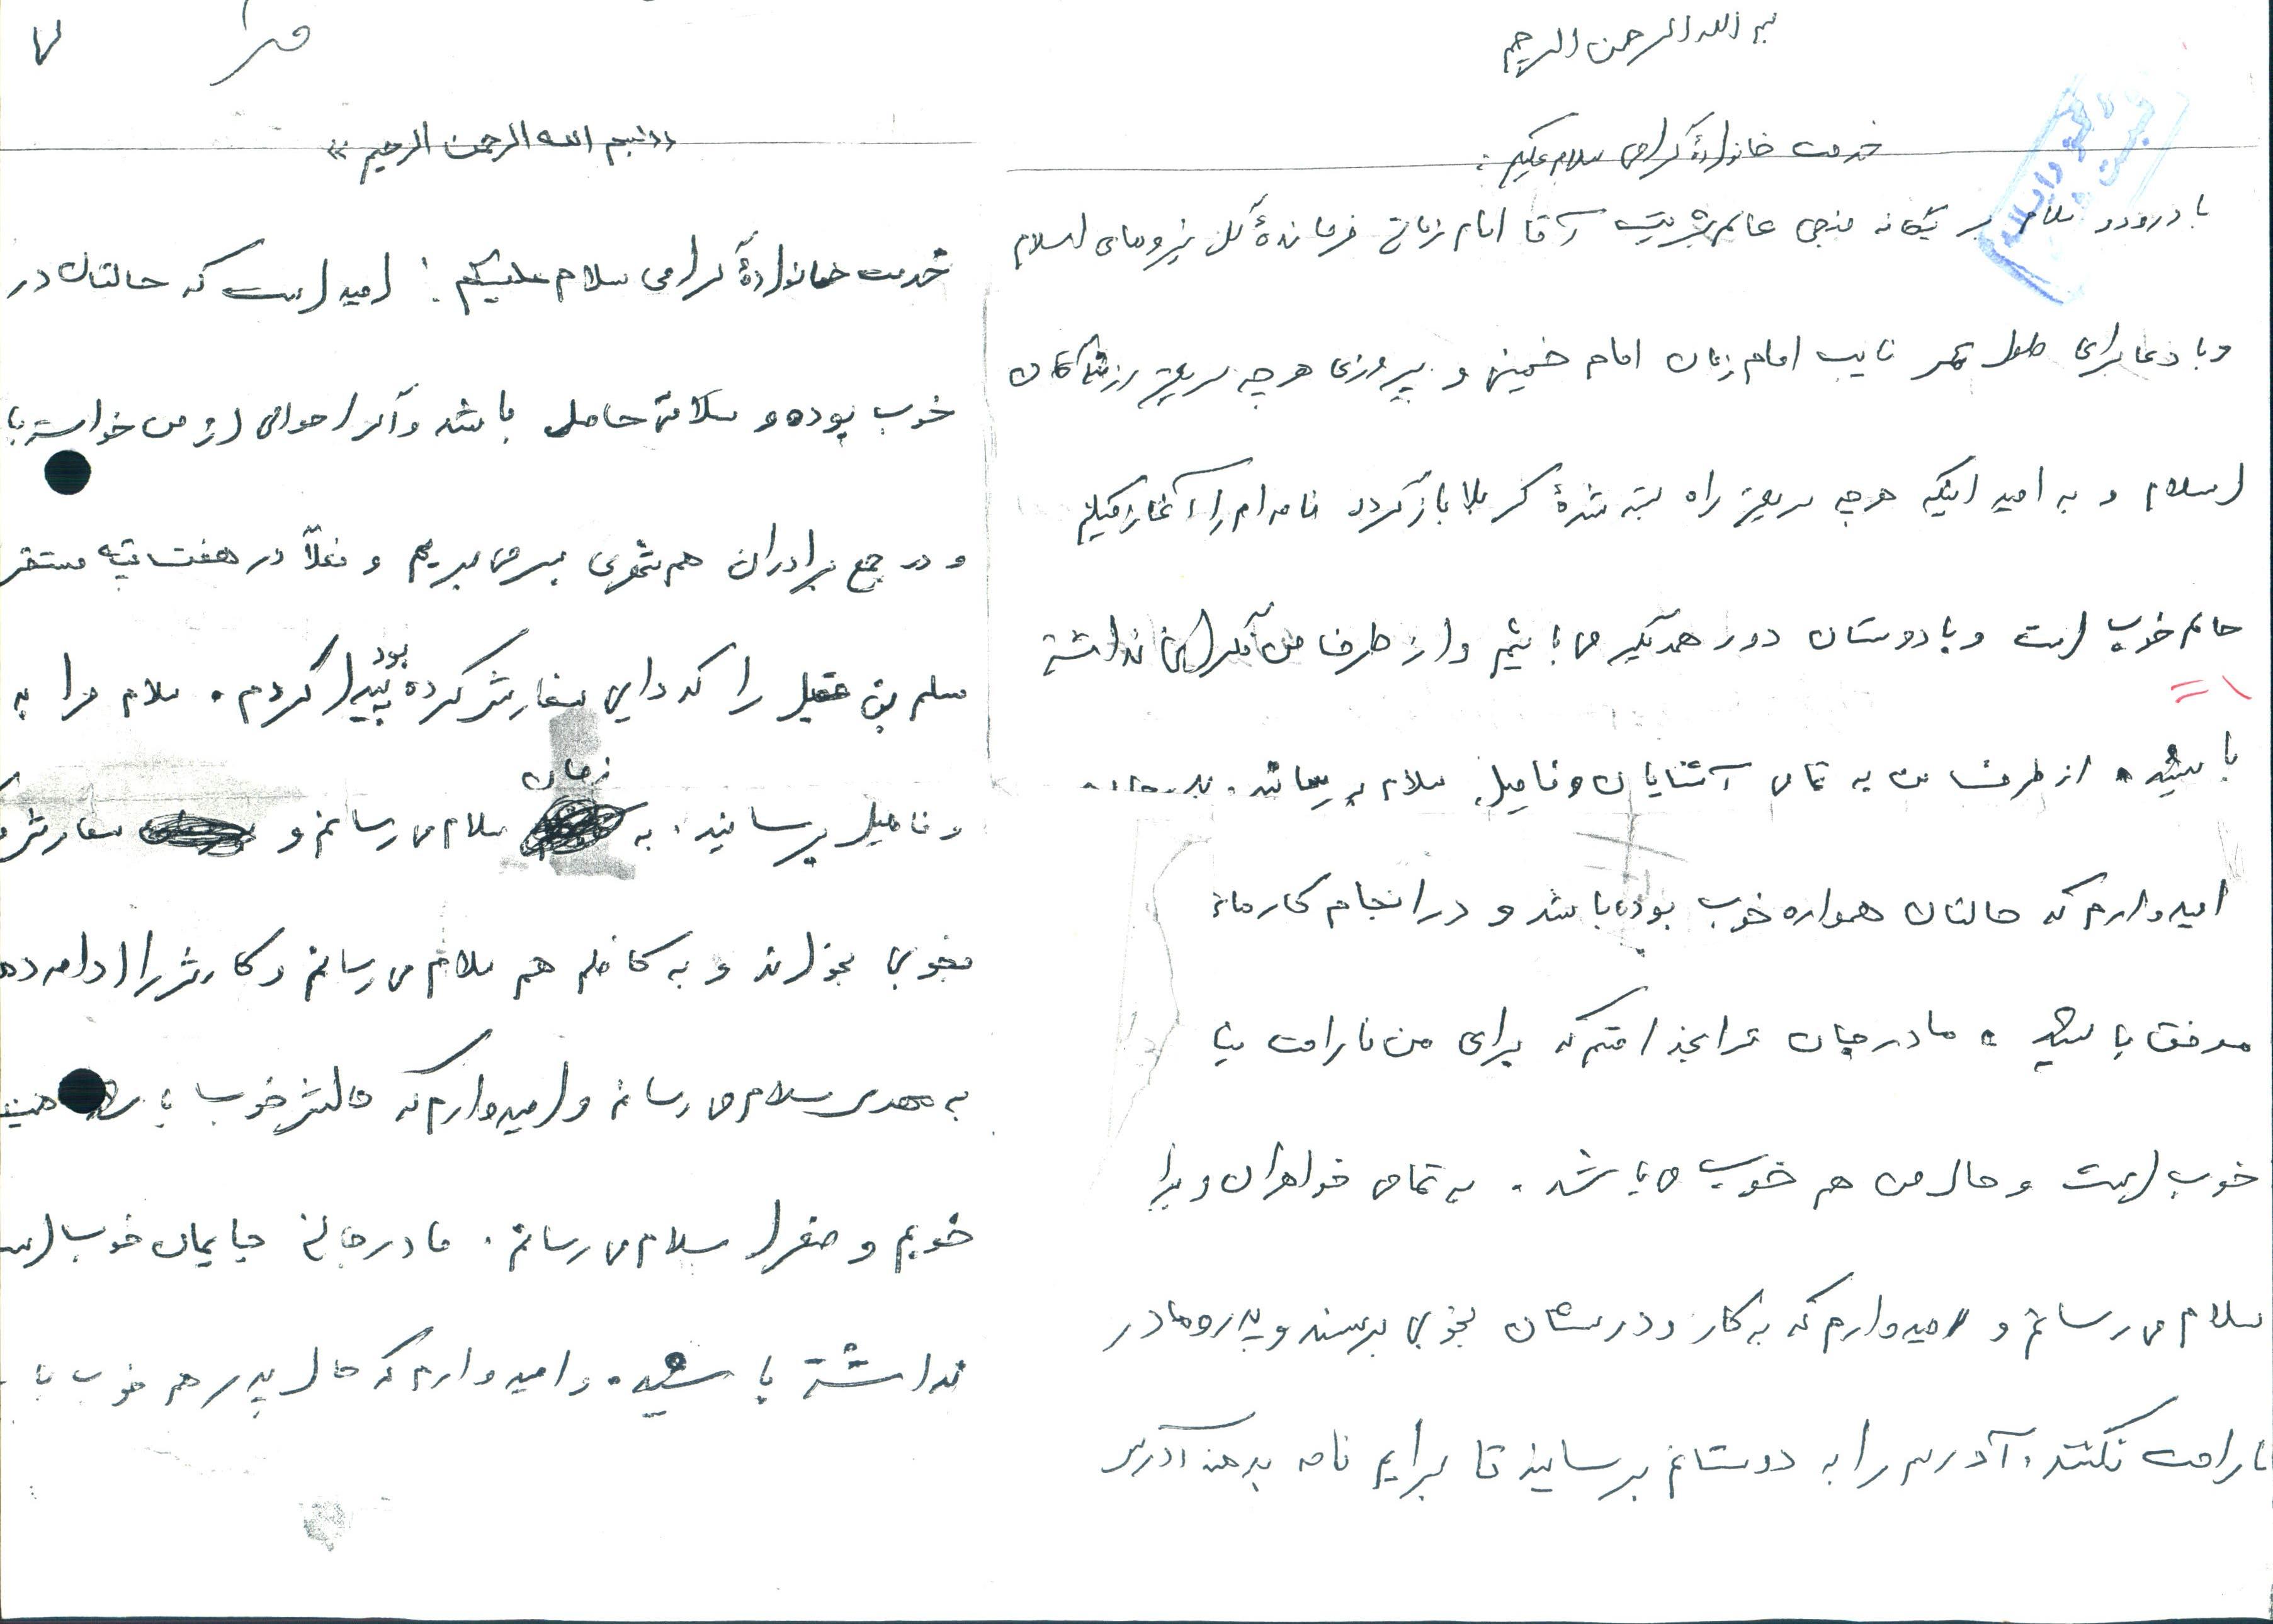 بسم الله الرحمن الرحیم
خدمت خانوادهٔ گرامی سلام علیکم:
با درود و سلام بر یگانه منجی عالم بشریت آقا امام زمان فرماندهٔ کل نیروهای اسلام
و با دعا برای طول عمر نایب امام زمان امام خمینی و پیروزی هر چه سریعتر رزمندگان
اسلام و به امید اینکه هر چه سریعتر راه بسته شدهٔ کربلا باز گردد نامه ام را آغاز میکنم
حالم خوب است و با دوستان دور همدیگر می باشیم و از طرف من نگرانی نداشته
باشید. از طرف من به تمامی آشنایان و فامیل سلام برسانید.
امیدوارم که حالتان همواره خوب بوده باشد و در انجام کارها
موفق باشید. مادر جان ترا بخدا قسم که برای من ناراحت
خوب است و حال من هم خوب می باشد. به تمامی خواهران و برا
سلام می رسانم و امیدوارم که به کار و درسشان بخوبی برسند و پدر و مادر
ناراحت نکنند. آدرسم را به دوستانم برسانید تا برایم نامه بدهند آدرس
۷
«بسم الله الرحمن الرحیم»
خدمت خانوادهٔ گرامی سلام علیکم: امید است که حالتان در
خوب بوده و سلامتی حاصل باشد و اگر احوالی از من خواسته با
و در جمع برادران هم شهری بسر می بریم و فعلاً در هفت تپه مستقر
مسلم بن عقیل را که دایی سفارش کرده بود پیدا کردم. سلام مرا به
و فامیل برسانید. به نرمان سلام می رسانم و سفارش
بخوبی بخواند و به کاظم هم سلام می رسانم و کارش را ادامه ده
به مهدی سلام می رسانم و امیدوارم که حالش خوب
خوبم و صغرا سلام می رسانم. مادر جان جایمان خوب است
نداشته باشید. و امیدوارم که حال پدر هم خوب با